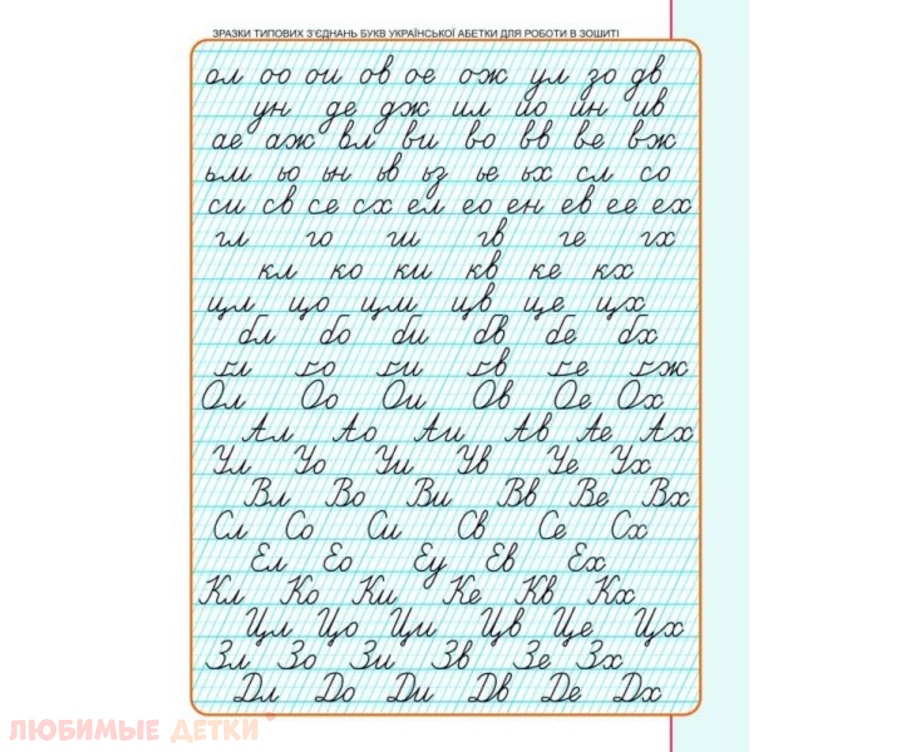 ЗРАЗКИ ТИПОВИХ З'ЄДНАНЬ БУКВ УКРАЇНСЬКОЇ АБЕТКИ ДЛЯ РОБОТИ В ЗОШИТІ
ол оо ои ов ое ож ул зо дв
ун де дж ил йо ин ив
ае аж вл ви во вв ве вж
ьм ьо ьн ьв ьз ье ьх сл со
си св се сх ел ео ен ев ее ех
гл го ги гв ге гх
кл ко ки кв ке кх
цл цо ци цв це цх
бл бо би бв бе бх
ґл ґо ґи ґв ґе ґж
Ол Оо Ои Ов Ое Ох
Ал Ао Аи Ав Ае Ах
Ул Уо Уи Ув Уе Ух
Вл Во Ви Вв Ве Вх
Сл Со Си Св Се Сх
Ел Ео Еу Ев Ех
Кл Ко Ки Ке Кв Кх
Цл Цо Ци Цв Це Цх
Зл Зо Зи Зв Зе Зх
Дл До Ди Дв Де Дх
ЛЮБИМЫЕ ДЕТКИ